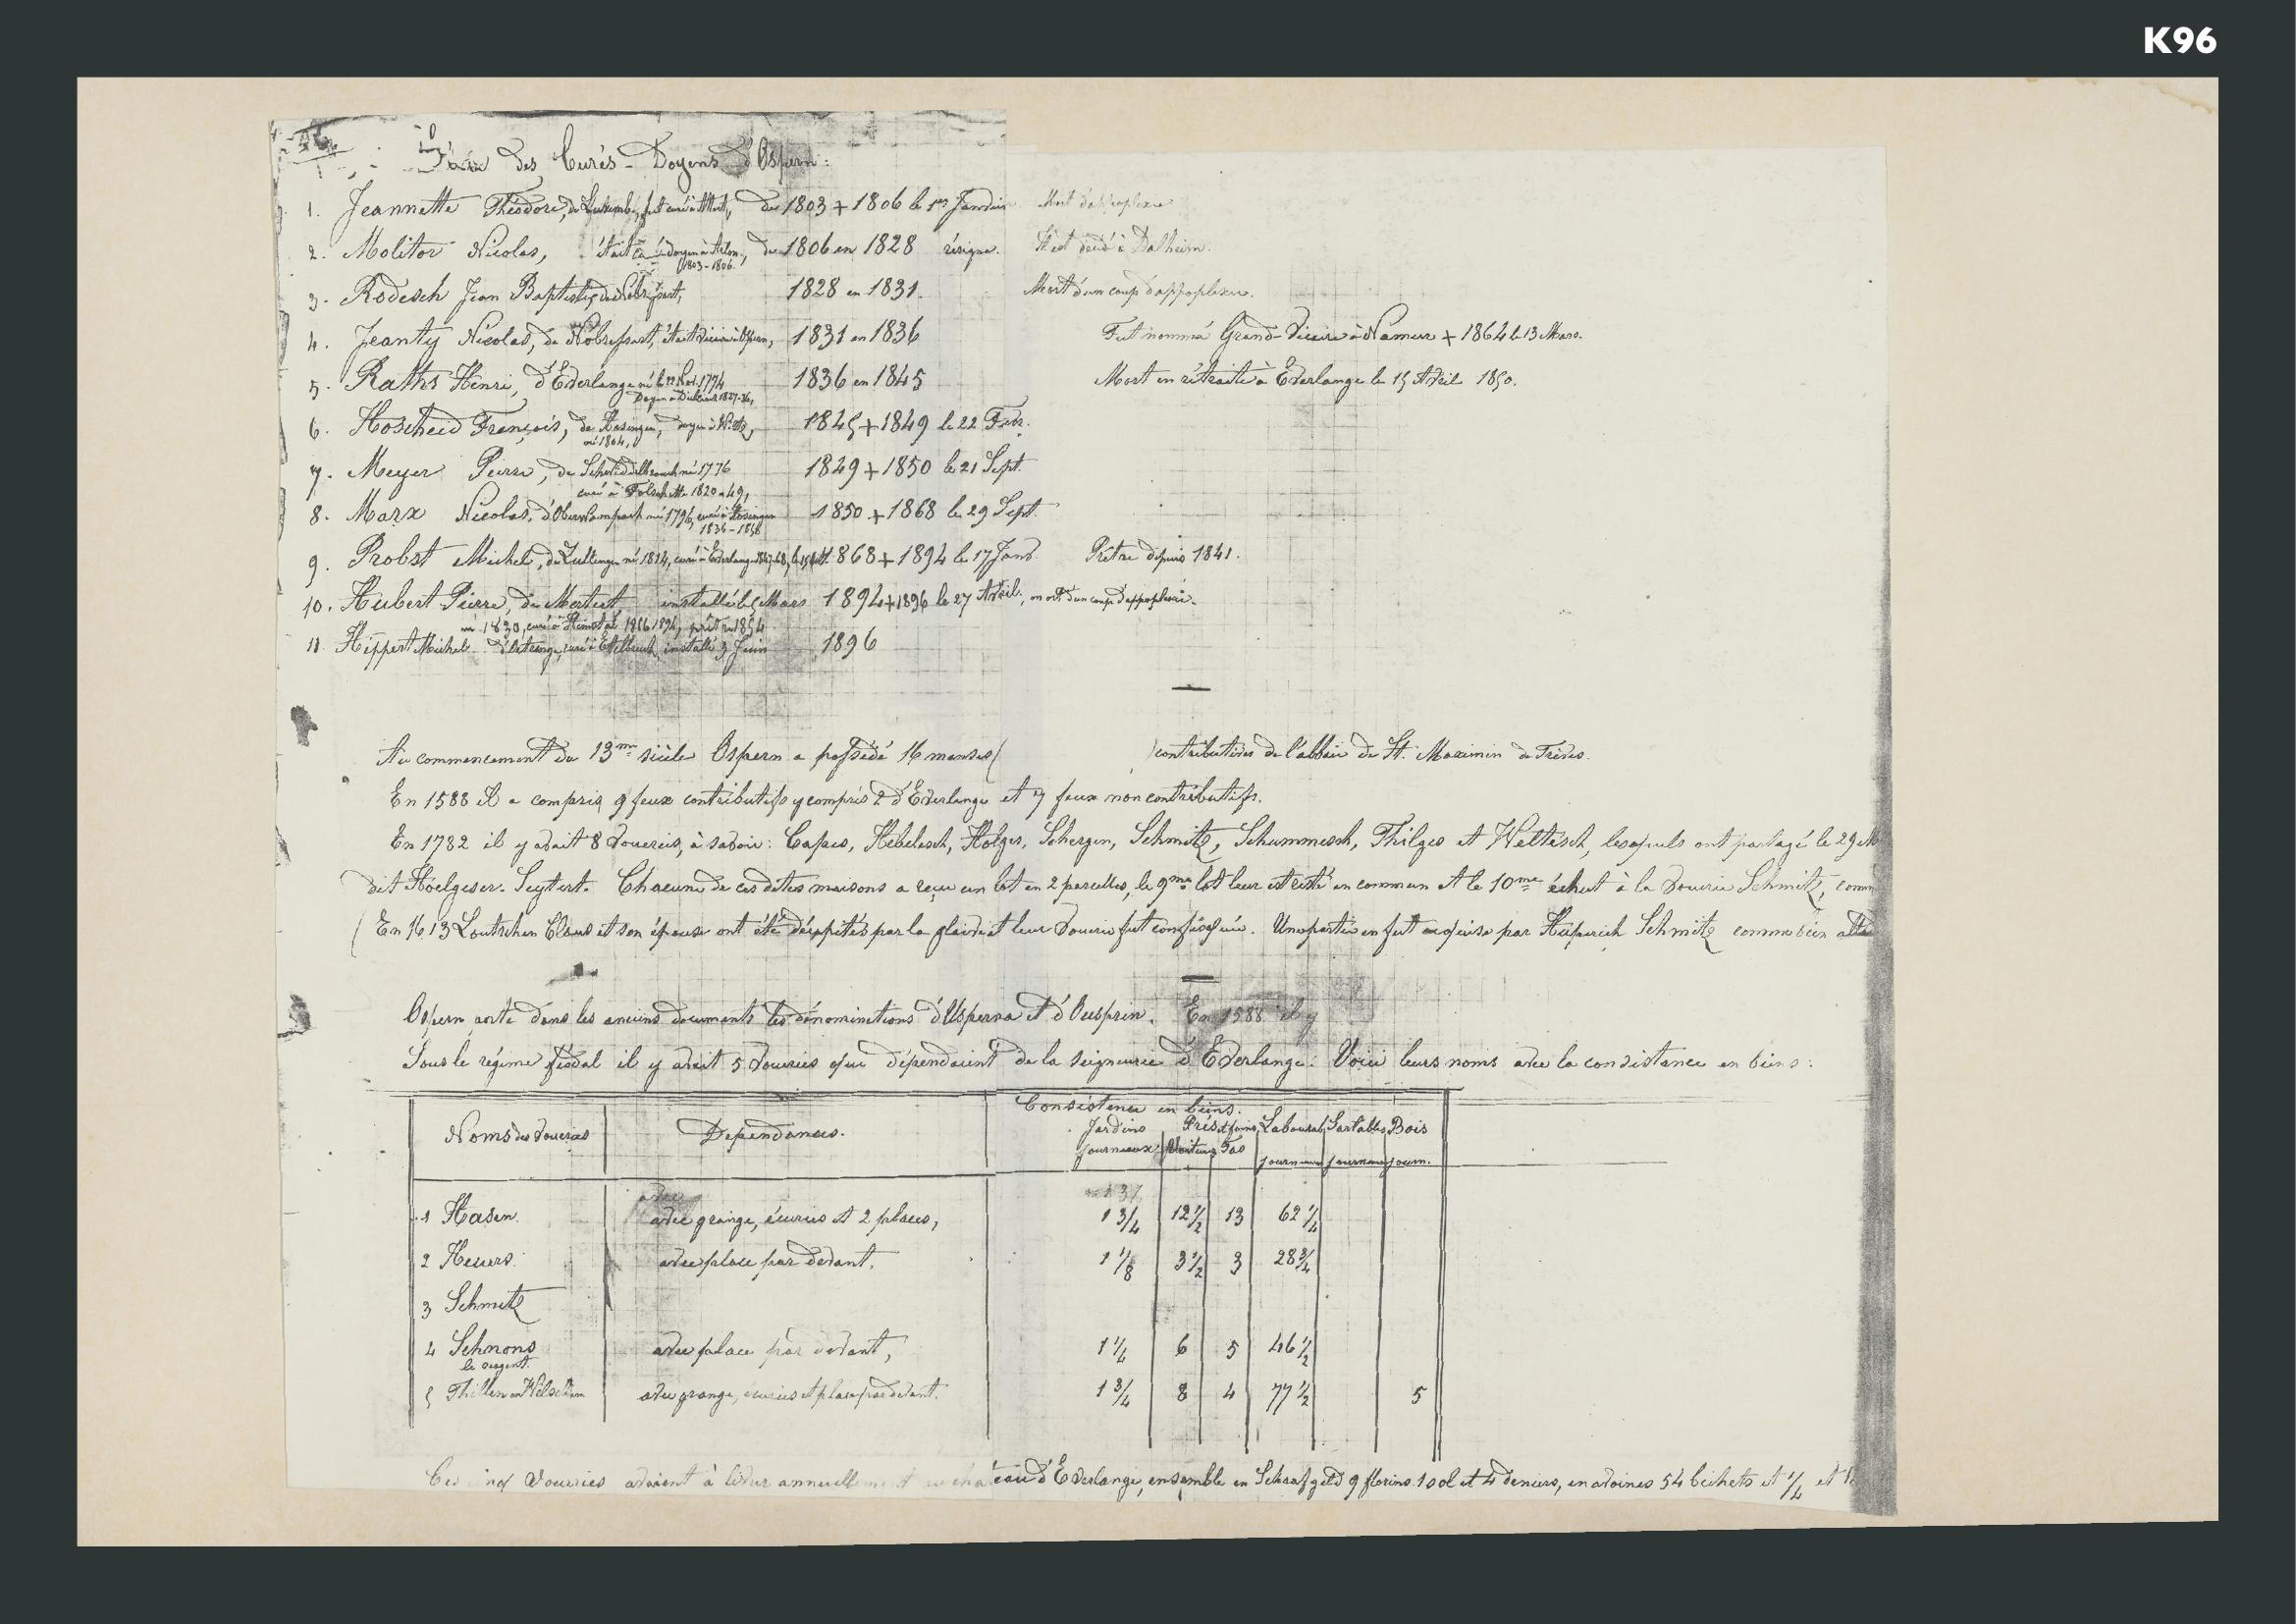 K96
des Curés-Doyens d'Ospern:
1. Jeannette Théodore, de Luxembg, fut curé à Attert, de 1803 + 1806 le 1er Janvier Mort d'appoplexie
2. Molitor Nicolas, était curé-doyen à Arlon, de 1806 en 1828 résigna. à Dalheim.
1803-1806.
3. Rodesch Jean Baptiste, de 1828 en 1831. Mort d'un coup d'appoplexie.
4. Jeanty Nicolas, de Nobressart, était vicaire à Ospern, 1831 en 1836 Fut nommé Grand-Vicaire à Namur + 1864 le 13 Mars.
5. Raths Henri, d'Everlange né le 22 1794 1836 en 1845 Mort en rétraite à Everlange le 15 Avril 1850.
Doyen à Diekirch 1827-36,
6. Hoscheid François, de Hosingen, doyen à Wiltz, 1845 + 1849 le 22 Fevr.
né 1804,
7. Meyer Pierre, de né 1776 1849 + 1850 le 21 Sept.
curé à Folschette 1820 a 49,
8. Marx Nicolas, d'Oberwampach né 1796, curé à Hosingen 1850 + 1868 le 29 Sept.
1836-1850
9. Probst Michel, de Lullange né 1814, curé à Everlange 1868 + 1894 le 17 Janv. Prêtre depuis 1841.
10. Hubert Pierre, de Mertert installé le 5 Mars 1894 + 1896 le 27 Avril, mort d'un coup d'appoplexie.
né 1830, curé à 1866 1894, prêtre 1854
11. Hippert Michel curé à Ettelbruck, installé 3 Juin 1896
Au commencement du 13me siècle Ospern a possédé 16 manses ( ) contributives de l'abbaie de St. Maximin de Trèves.
En 1588 il a compris 9 feux contributifs y compris 2 d'Everlange et 7 feux non contributifs.
En 1782 il y avait 8 voueries, à savoir: Capes, Hebelesch, Holges, Schergen, Schmitz, Schummesch, Thilges et Weltesch, lesquels ont partagé le 29
dit Hoelgeser-Seytert. Chacune de ces dites maisons a reçu un lot en 2 parcelles, le 9me lot leur est resté en commun et le 10me échut à la vouerie Schmitz,
(En 1613 Loutschen Claus et son épouse ont été par la et leur vouerie fut confisquée. Une partie en fut acquise par Heinrich Schmitz comme bien
Ospern porte dans les anciens documents les dénominations d'Usperna et d'Ousprin. En 1588 il y
Sous le régime féodal il y avait 5 voueries que dépendaient de la seigneurie d'Everlange. Voici leurs noms avec la consistance en biens:
Consistence en biens.
Noms des Voueries Dependances. Jardins Prés et foins Labourabl Sartables Bois
journeaux Voitures Fas journeaux journeaux journ.
1 Hasen. avec grange, écuries et 2 places, 1 3/4 12 1/2 13 62 1/4
2 Heuers. avec place par devant. 1 1/8 3 1/2 3 28 3/4
3 Schmitz
4 Schnons avec place par devant, 1 1/4 6 5 46 1/2
le sergent.
5 Thillen avec grange, écuries et place par devant. 1 3/4 8 4 77 1/2 5
Ces cinq voueries avaient à livrer annuellement au château d'Everlange, ensemble en Schrafgeld 9 florins 1 sol et 4 deniers, en avoines 54 bichets et 1/4 et